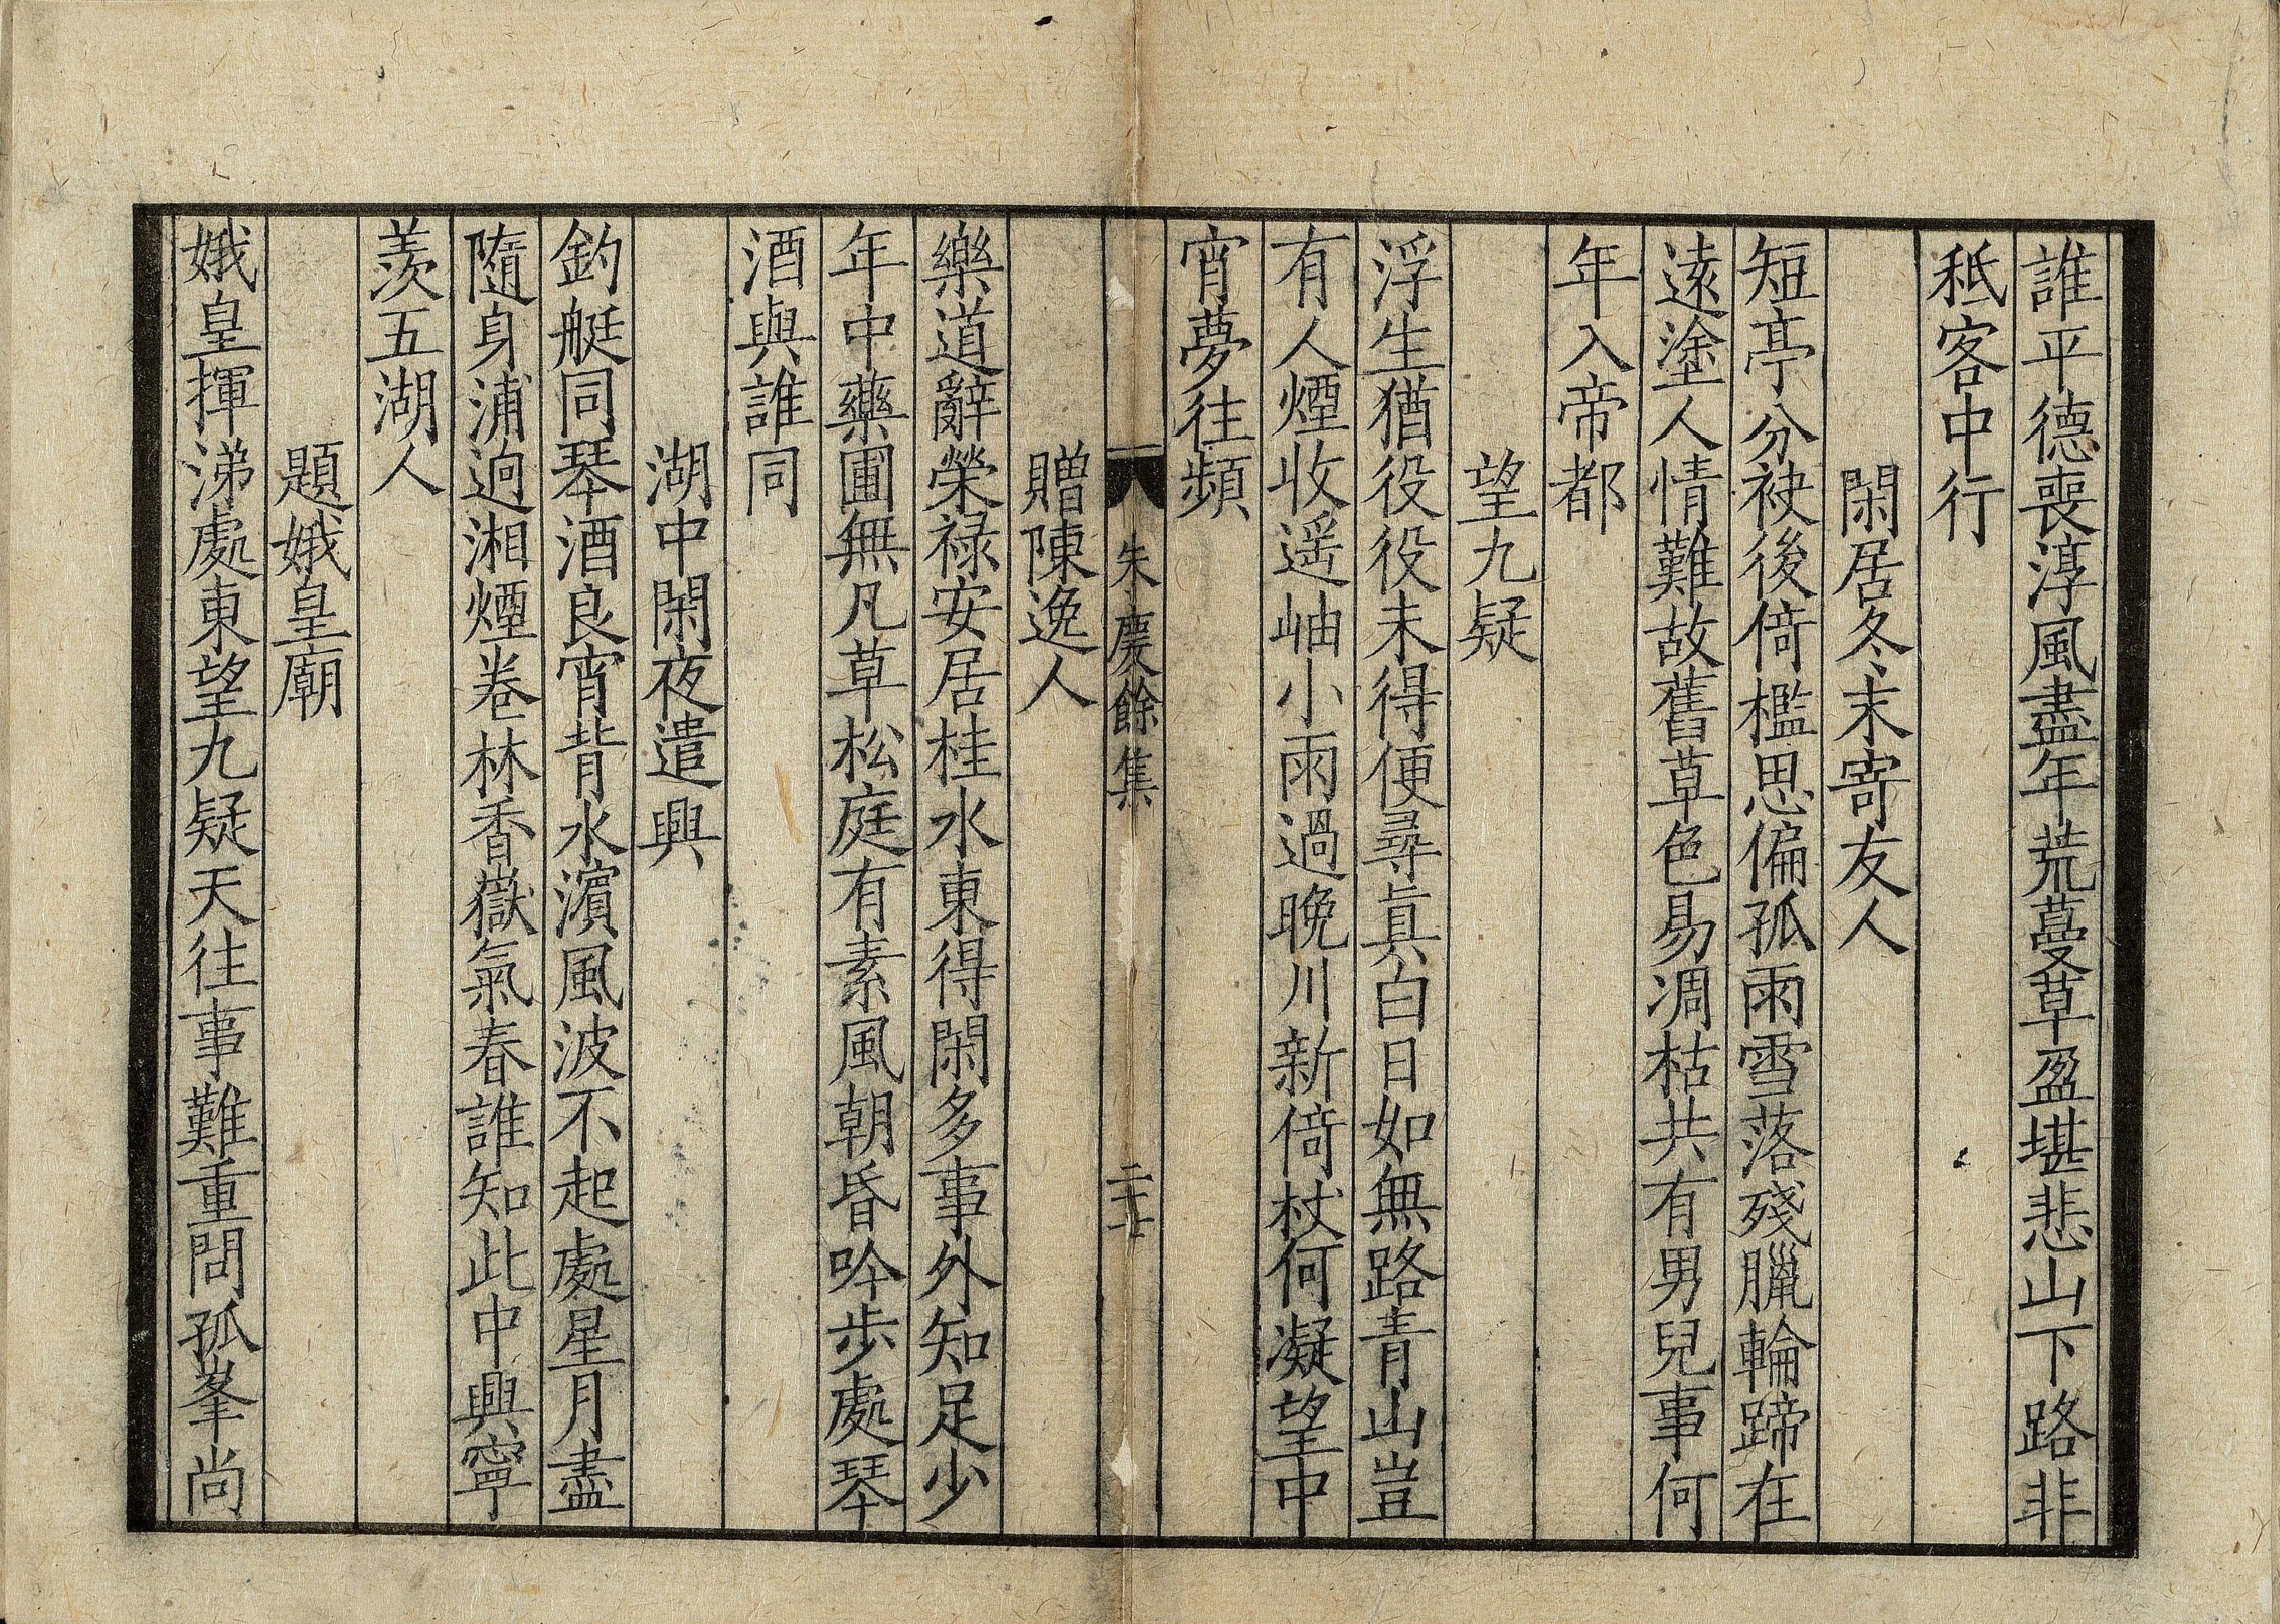 誰平德喪淳風盡年荒蔓草盈堪悲山下路非
秪客中行
閑居冬末寄友人
短亭分袂後倚檻思偏孤雨雪落殘臘輪蹄在
逺塗人情難故舊草色易凋枯共有男兒事何
年入帝都
望九疑
浮生猶役役未得便尋眞白日如無路青山豈
有人煙收遥岫小雨過晚川新倚杖何凝望中
宵夢往頻
朱慶餘集
二十七
贈陳逸人
樂道辭榮禄安居桂水東得閑多事外知足少
年中藥圃無凡草松庭有素風朝昏吟步處琴
酒與誰同
湖中閑夜遣興
釣艇同琴酒良宵背水濱風波不起處星月盡
隨身浦逈湘煙卷林香嶽氣春誰知此中興寧
羨五湖人
題娥皇廟
娥皇揮涕處東望九疑天往事難重問孤峯尚